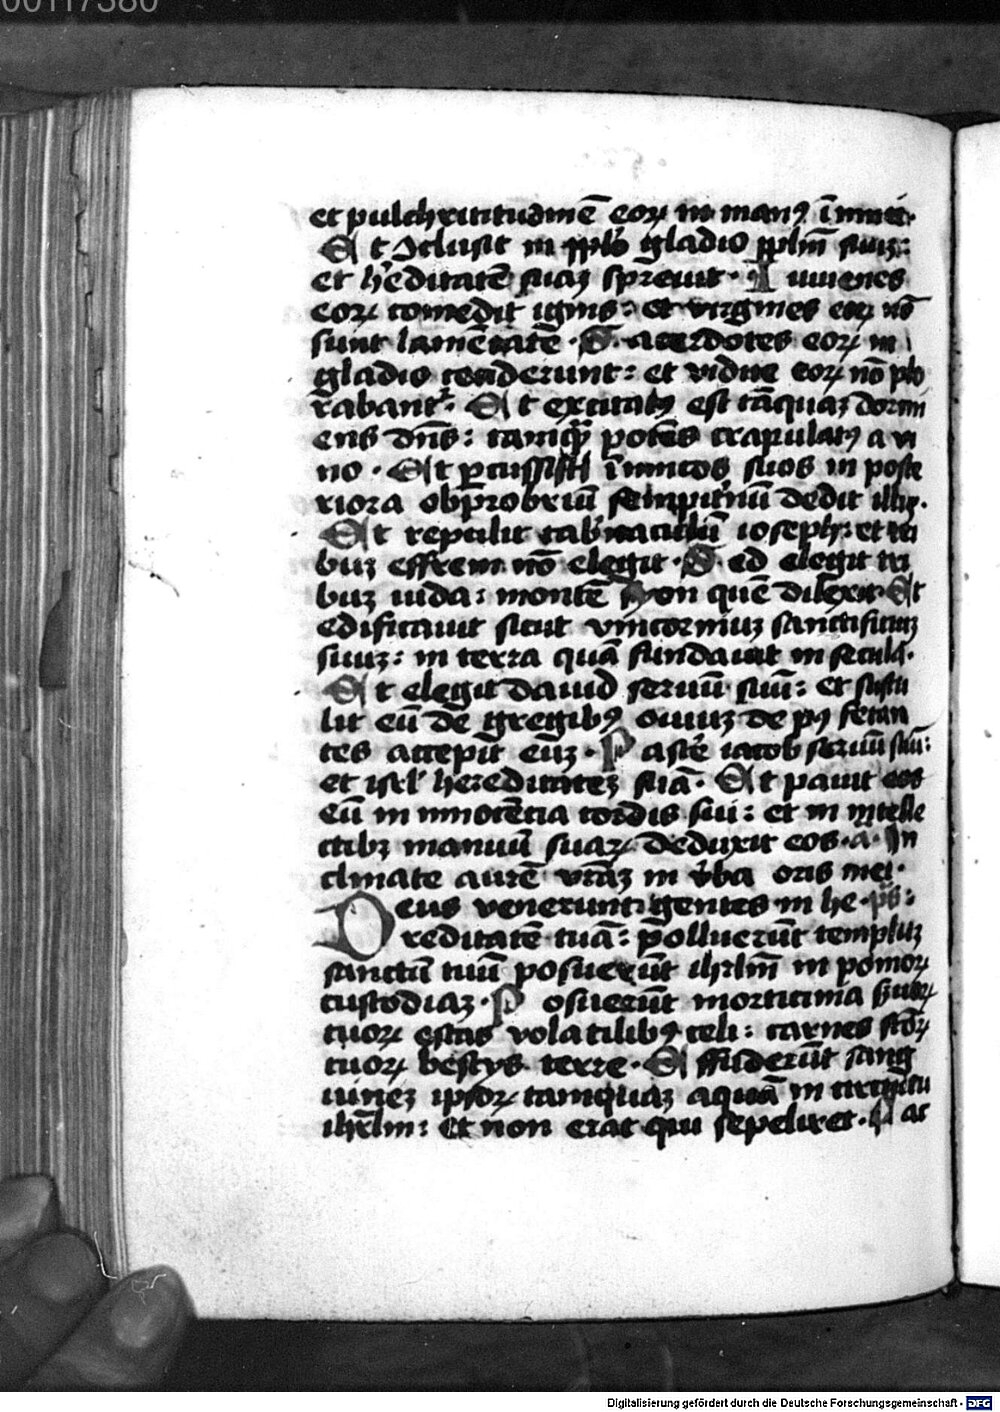 00117380
et pulchrititudinē eoꝝ in manꝰ īnimici.
Et ꝯclusit in gladio pplm̄ suuꝫ:
et h̓editatē suaꝫ spreuit. Iuuenes
eoꝝ comedit ignis: et virgines eoꝝ nō
sunt lamētate. Sacerdotes eoꝝ in
gladio ceciderunt: et vidue eoꝝ nō plo
rabant᷑. Et excitatꝰ est tāquaꝫ dormi
ens dn̄s: tamqͣꝫ potēs crapulatꝰ a vi
no. Et ꝑcussit īnimicos suos in poste
riora obprobriū sempit̓nū dedit illis.
Et repulit tab̓naculū ioseph: et tri
buꝫ effrem nō elegit. Sed elegit tri
buꝫ iuda: montē syon quē dilexit. Et
edificauit sicut vnicorniuꝫ sanctificiuꝫ
suuꝫ: in terra quā fundauit in secula.
Et elegit dauid seruū suū: et sustu
lit eū de gregibꝰ ouiuꝫ de pꝰ fetan
tes accepit euꝫ. Pascē iacob seruū suū:
et isrl̓ hereditateꝫ suā. Et pauit eos
eū in innocētia cordis sui: et in intelle
ctibꝫ manuū suaꝝ deduxit eos. a. In
clinate aurē vrāꝫ in v̓ba oris mei.
Deus venerunt gentes in he. p̄s:
reditatē tuā: polluerūt templuꝫ
sanctū tuū posuerūt ihrlm̄ in pomoꝝ
custodiaꝫ. Posuerūt morticina s̓uoꝝ
tuoꝝ escas volatilibꝰ celi: carnes sc̄oꝝ
tuoꝝ bestijs terre. Effuderūt sang
uineꝫ ipsoꝝ tamquaꝫ aquā in circuitu
ihrl̄m: et non erat qui sepeliret. Fac
Digitalisierung gefördert durch die Deutsche Forschungsgemeinschaft - DFG